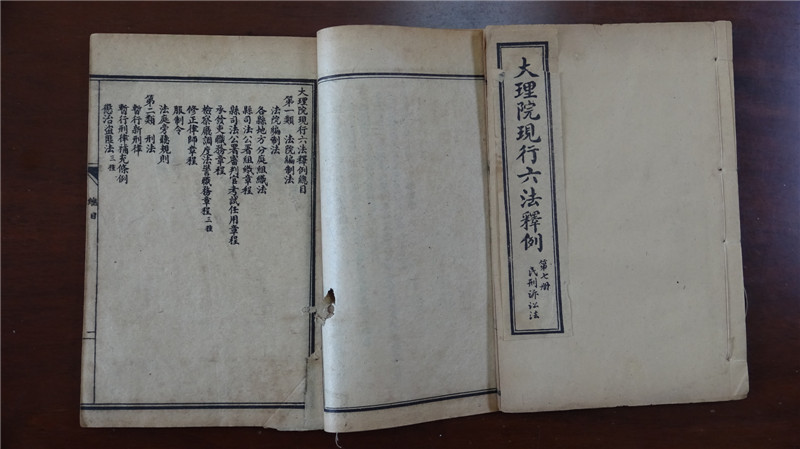 大理院現行六法釋例
第七册
民刑訴訟法
大理院現行六法釋例總目
第一類 法院編制法
法院編制法
各縣地方分庭組織法
縣司法公署組織章程
縣司法公署審判官考試任用章程
承發吏職務章程
檢察廳調度法警職務章程三種
修正律師章程
服制令
法庭旁聽規則
第二類 刑法
暫行新刑律
暫行刑律補充條例
懲治盜匪法三種
總目